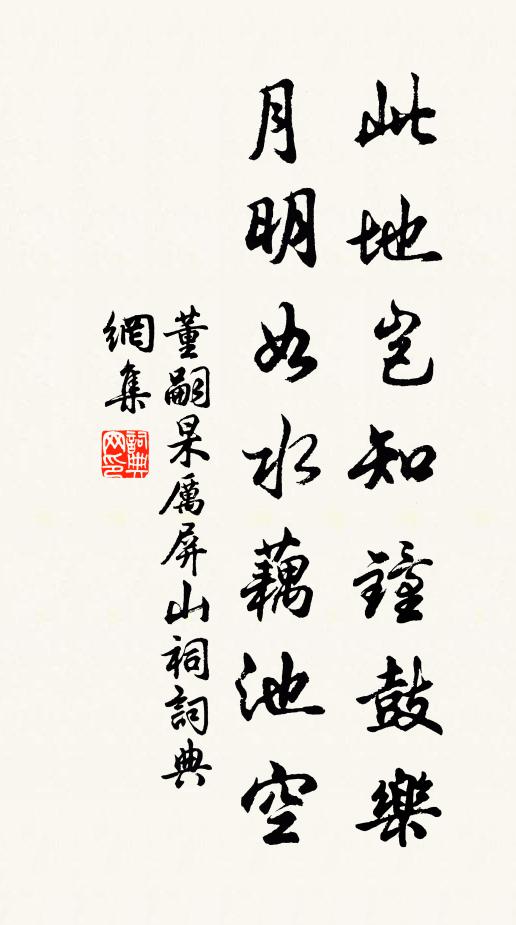 此地岂知鐘鼓樂
月明如水藕池空
董嗣杲厲屏山祠詞典
網集
詞典網印